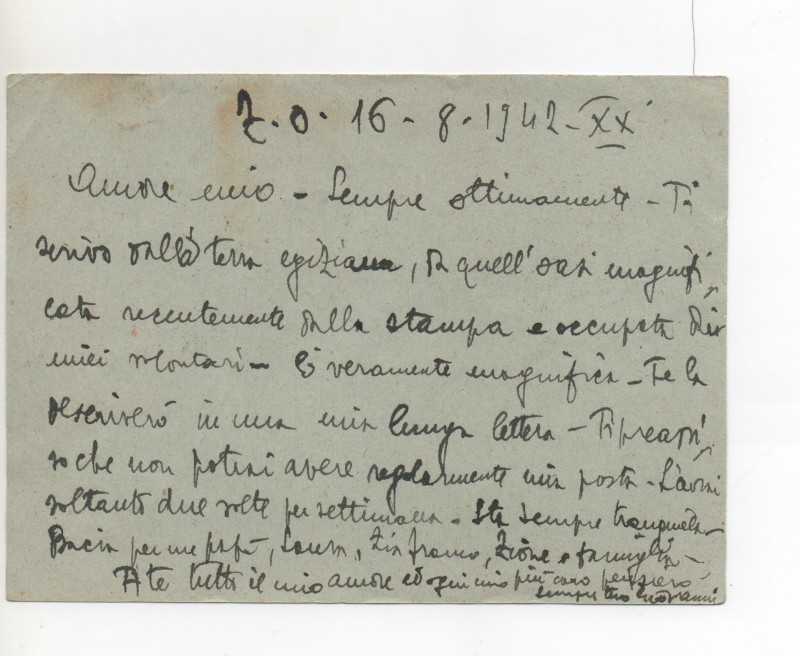 Z.O. 16-8-1942-XX
Amore mio - Sempre ottimamente - Ti
scrivo dalla terra egiziana, da quell'oasi magnifi
cata recentemente dalla stampa e occupata dai
miei volontari - È veramente magnifica - Te la
descriverò in una mia lunga lettera - Ti preavvi
so che non potrai avere regolarmente mia posta - L'avrai
soltanto due volte per settimana - Sta sempre tranquilla -
Bacia per me papà, Laura, Zia, Zione e famiglia -
A te tutto il mio amore ed ogni mio più caro pensiero -
sempre tuo Giovanni